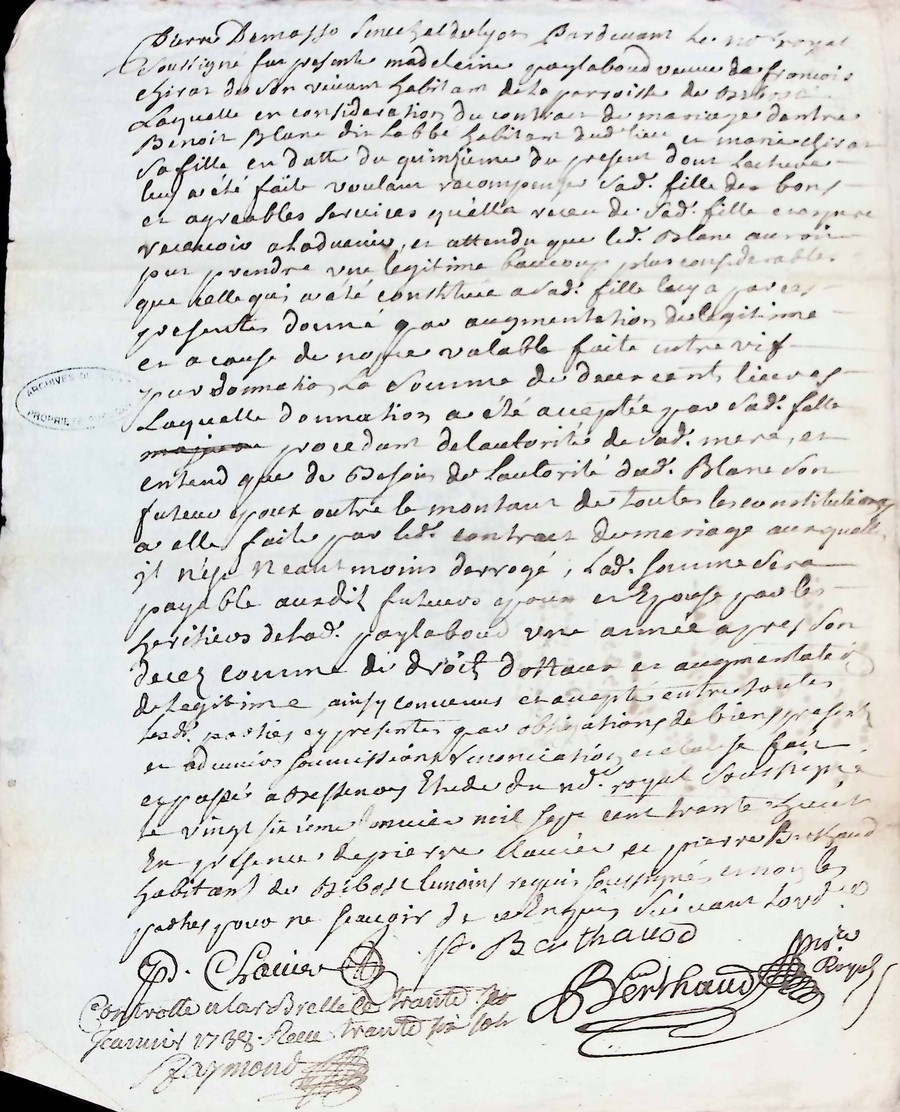 Pierre Demasso Senechal de Lyon Pardevant le no.re royal
soussigné fut presente madeleine paylaboud veuve de francois
chirat de son vivant habitant de la parroisse de Bibost
Laquelle en consideration du contract de mariage d'entre
Benoit Blanc dit Labbé habitant dud. lieu et marie chirat
sa fille en datte du quinsieme du present dont lecture
luy a été faite voulant recompenser sad. fille des bons
et agreables services quella receu de sad. fille et espere
recevoir a ladvenir, et attendu que led. Blanc auroit
pu prendre une legitime baucoup plus considerable
que celle qui a été constituée a sad. fille luy a par ces
presentes donné par augmentation de legitime
et a cause de nopce valable faite entre vif
pur donnation La somme de deux cent livres
Laquelle donnation a été acceptée par sad. fille
majeure procedant de lautorité de sad. mere, et
entend que de besoin de lautorité dud. Blanc son
futeur epoux outre le montant de toutes les constitutions
a elle faite par led. contract de mariage auxquelles
il n'est neautmoins derrogé, Lad. somme sera
payable ausdit futeurs epoux et Epouse par les
heritiers de lad. paylaboud une année apres son
decez comme de droit dottaux et augmentation
de legitime, ainsy convenus et accepté entre toutes
lesd. parties cy presentes par obligations de biens present
et advenirs soumissions renonciation et clause fait
et passé a Bessenay Etude du nd. royal soussigné
le vingt sixieme Janvier mil sept cent trante huict
En presence de pierre et de pierre Berthaud
habitant de Bibost temoins requis soussignés et non les
parties pour ne scavoir de ce Enquis suivant Lord.ce
P. Berthaud
Berthaud no.re Royal
Controllé a Larbrelle le trante
Janvier 1738. Receu trante six sols
Raymond
ARCHIVES DU
PROPRIETE